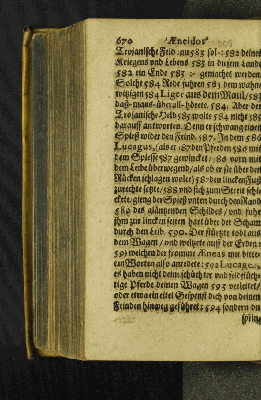 670 Æneidos
Trojanische Feld: nu 583 sol - 582 deines
Kriegens und Lebens 583 in diesem Lande
582 ein Ende 583 :- gemachet werden
Solcht 584 Rede fuhren 583 dem wahn-
witzigen 584 Liger aus dem Maul / 583
daß mans überall hörete. 584. Aber der
Trojanische Held 585 wolte 584 nicht 585
darauff antworten. Denn er schwang einen
Spieß wider den Feind. 587. In dem 586
Lucagus / als er 187 den Pferden 586 mit
dem Spiesse 587 gewincket / 86 vorn mit
dem Leibe überwegend / als ob er sie über den
Rücken schlagen wolte) 58 den lincken Fuß
zurechte setzte / 588 und sich zum Streit schi-
ckete / gieng der Spieß unten durch den Rand
589 des gläntzenden Schildes / und fuhr
ihm zur lincken seiten hart über der Scham
durch den Leib. 590. Der stürtzte todt aus
dem Wagen / und weltzete auff der Erden :
591 welchen der fromme Æneas mit bitte-
ren Worten also anredete : 592 Lucage,
es haben nicht deine schüchter und feldflüch-
tige Pferde deinen Wagen 593 verleitet /
oder etwa ein eitel Gespenst dich von deinen
Feinden hinweg geführet : 594 sondern du